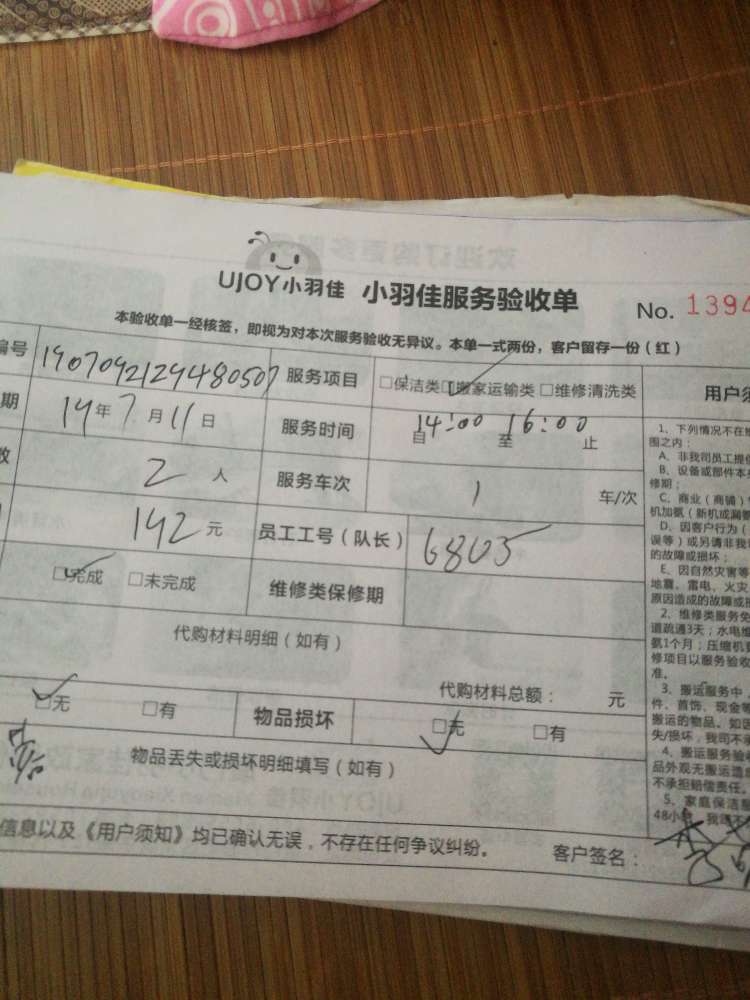 UJOY小羽佳 小羽佳服务验收单 No. 1394
本验收单一经核签，即视为对本次服务验收无异议。本单一式两份，客户留存一份（红）
编号 1907092129480507 服务项目 □保洁类□搬家运输类 □维修清洗类 用户须
期 19年7月11日 服务时间 14:00 16:00
自 至 止
2人 服务车次 1 车/次
192元 员工工号（队长） 6805
□完成 □未完成 维修类保修期
代购材料明细（如有）
代购材料总额： 元
□无 □有 物品损坏 □无 □有
物品丢失或损坏明细填写（如有）
信息以及《用户须知》均已确认无误，不存在任何争议纠纷。 客户签名：
1、下列情况不在
围之内：
A、非我司员工提
B、设备或部件本
修期；
C、商业（商铺）
机加氨（新机或漏
D、因客户行为（
误等）或另请非我
的故障或损坏；
E、因自然灾害等
地震、雷电、火灾
原因造成的故障或
2、维修类服务免
道疏通3天；水电维
氨1个月；压缩机
修项目以服务验收
准。
3、搬运服务中，
件、首饰、现金等
搬运的物品。如因
失/损坏，我司不承
4、搬运服务验
品外观无搬运造
不承担赔偿责任。
5、家庭保洁
48小